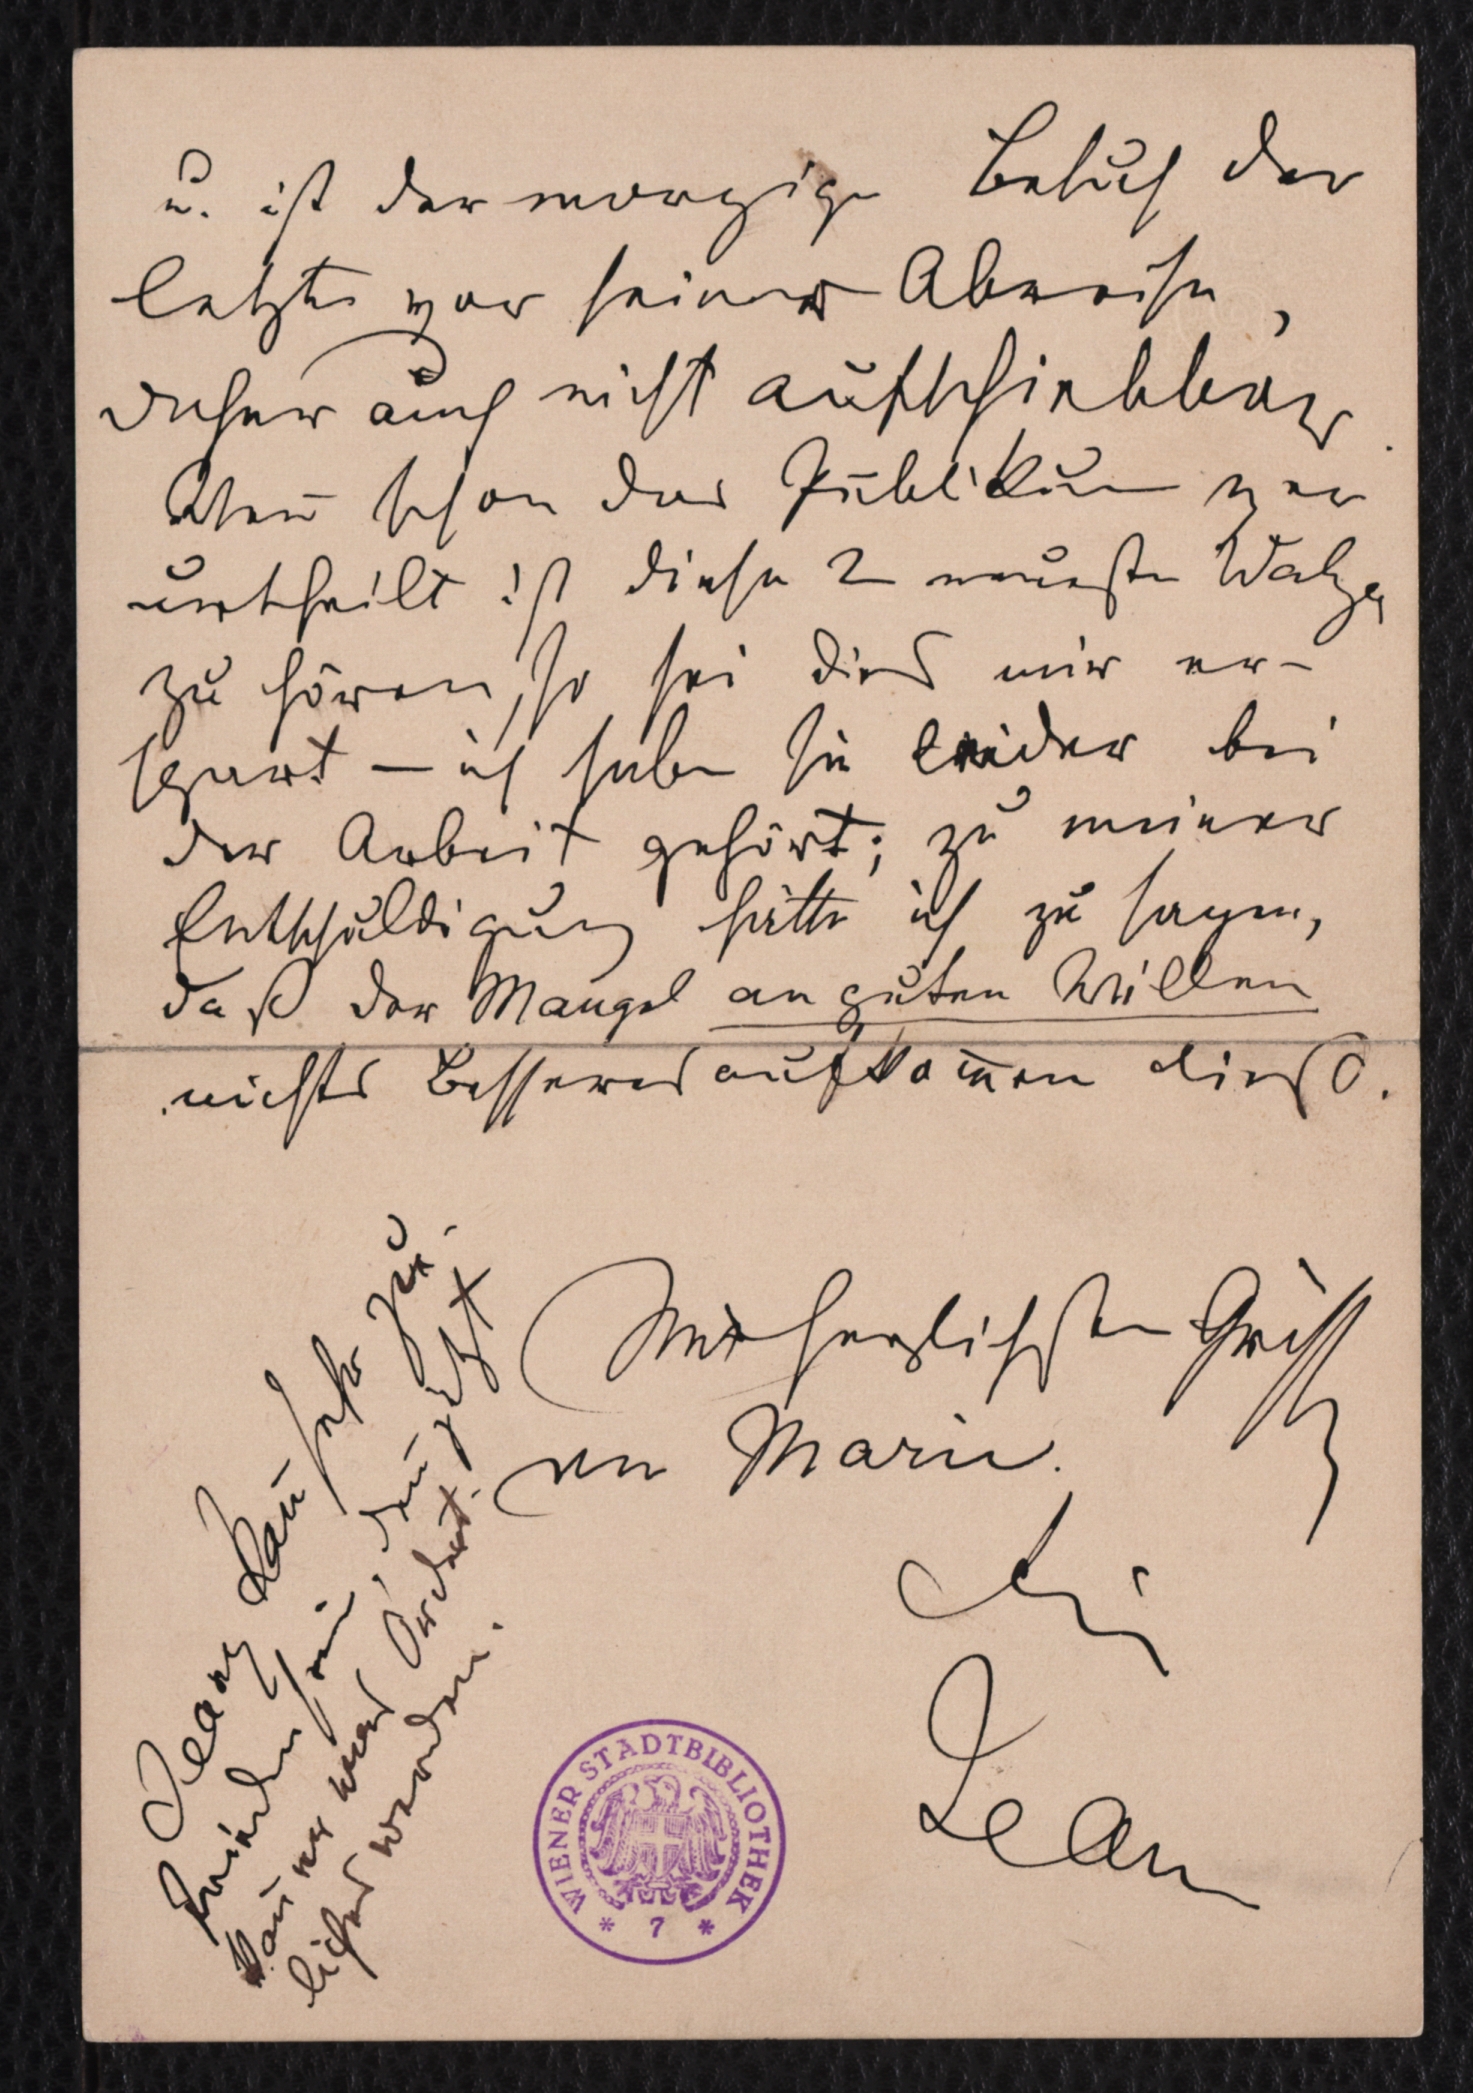 u. ist der morgige Besuch der
letzte vor seiner Abreise,
daher auch nicht aufschiebbar.
Wen̄ schon das Publikum ver
urtheilt ist diese 2 neuesten Walzer
zu hören, so sei dies mir er-
spart – ich habe sie leider bei
der Arbeit gehört; zu meiner
Entschuldigung hätte ich zu sagen,
daß der Mangel an guten Willen
nichts Besseres aufkom̄en ließ.
Mit herzlichsten Grüssen
an Marie.
Dein
Jean
kan̄ sehr zu-
frieden sein, den̄ jetzt
kan̄ er was Ordent-
liches werden.
WIENER STADTBIBLIOTHEK
* 7 *